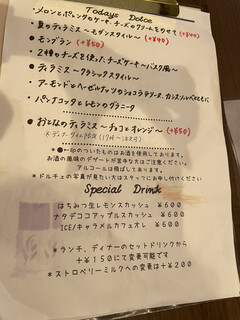 Todays Dolce
• メロンとポレンタのケーキ、チーズのクリームをのせて(+¥40)
• 夏のティラミス〜モダンスタイル〜(+¥40)
• モンブラン(+¥50)
• 2種のチーズを使った、チーズケーキ〜バスク風〜
• ティラミス〜クラシックスタイル〜
• アーモンドとヘーゼルナッツのショコラテリーヌ、カシスソルベをそえて
• パンナコッタとレモンのグラニータ
● おとなのティラミス〜チョコとオレンジ〜(+¥50)
※ディナータイム限定(17時〜)
※●ー印のついたものはお酒を使用しております。
お酒の風味のデザートが苦手な方はご注意ください。
アルコールは飛ばしてあります。
*ドルチェの写真が見たい方はスタッフにお申し付けください
Special Drink
はちみつ生レモンスカッシュ ¥600
ナタデココアップルスカッシュ ¥600
ICE/キャラメルカフェオレ ¥600
*ランチ、ディナーのセットドリンクから
+¥150にて変更可能です
*ストロベリーミルクへの変更は+¥200